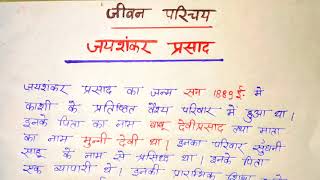 जीवन परिचय
जयशंकर प्रसाद
जयशंकर प्रसाद का जन्म सन 1889 ई॰ में
काशी के प्रतिष्ठित वैश्य परिवार में हुआ था।
इनके पिता का नाम बाबू देवीप्रसाद तथा माता
का नाम मुन्नी देवी था। इनका परिवार सुंघनी
साहू के नाम से प्रसिध्द था। इनके पिता
एक व्यापारी थे। इनकी प्रारम्भिक शिक्षा